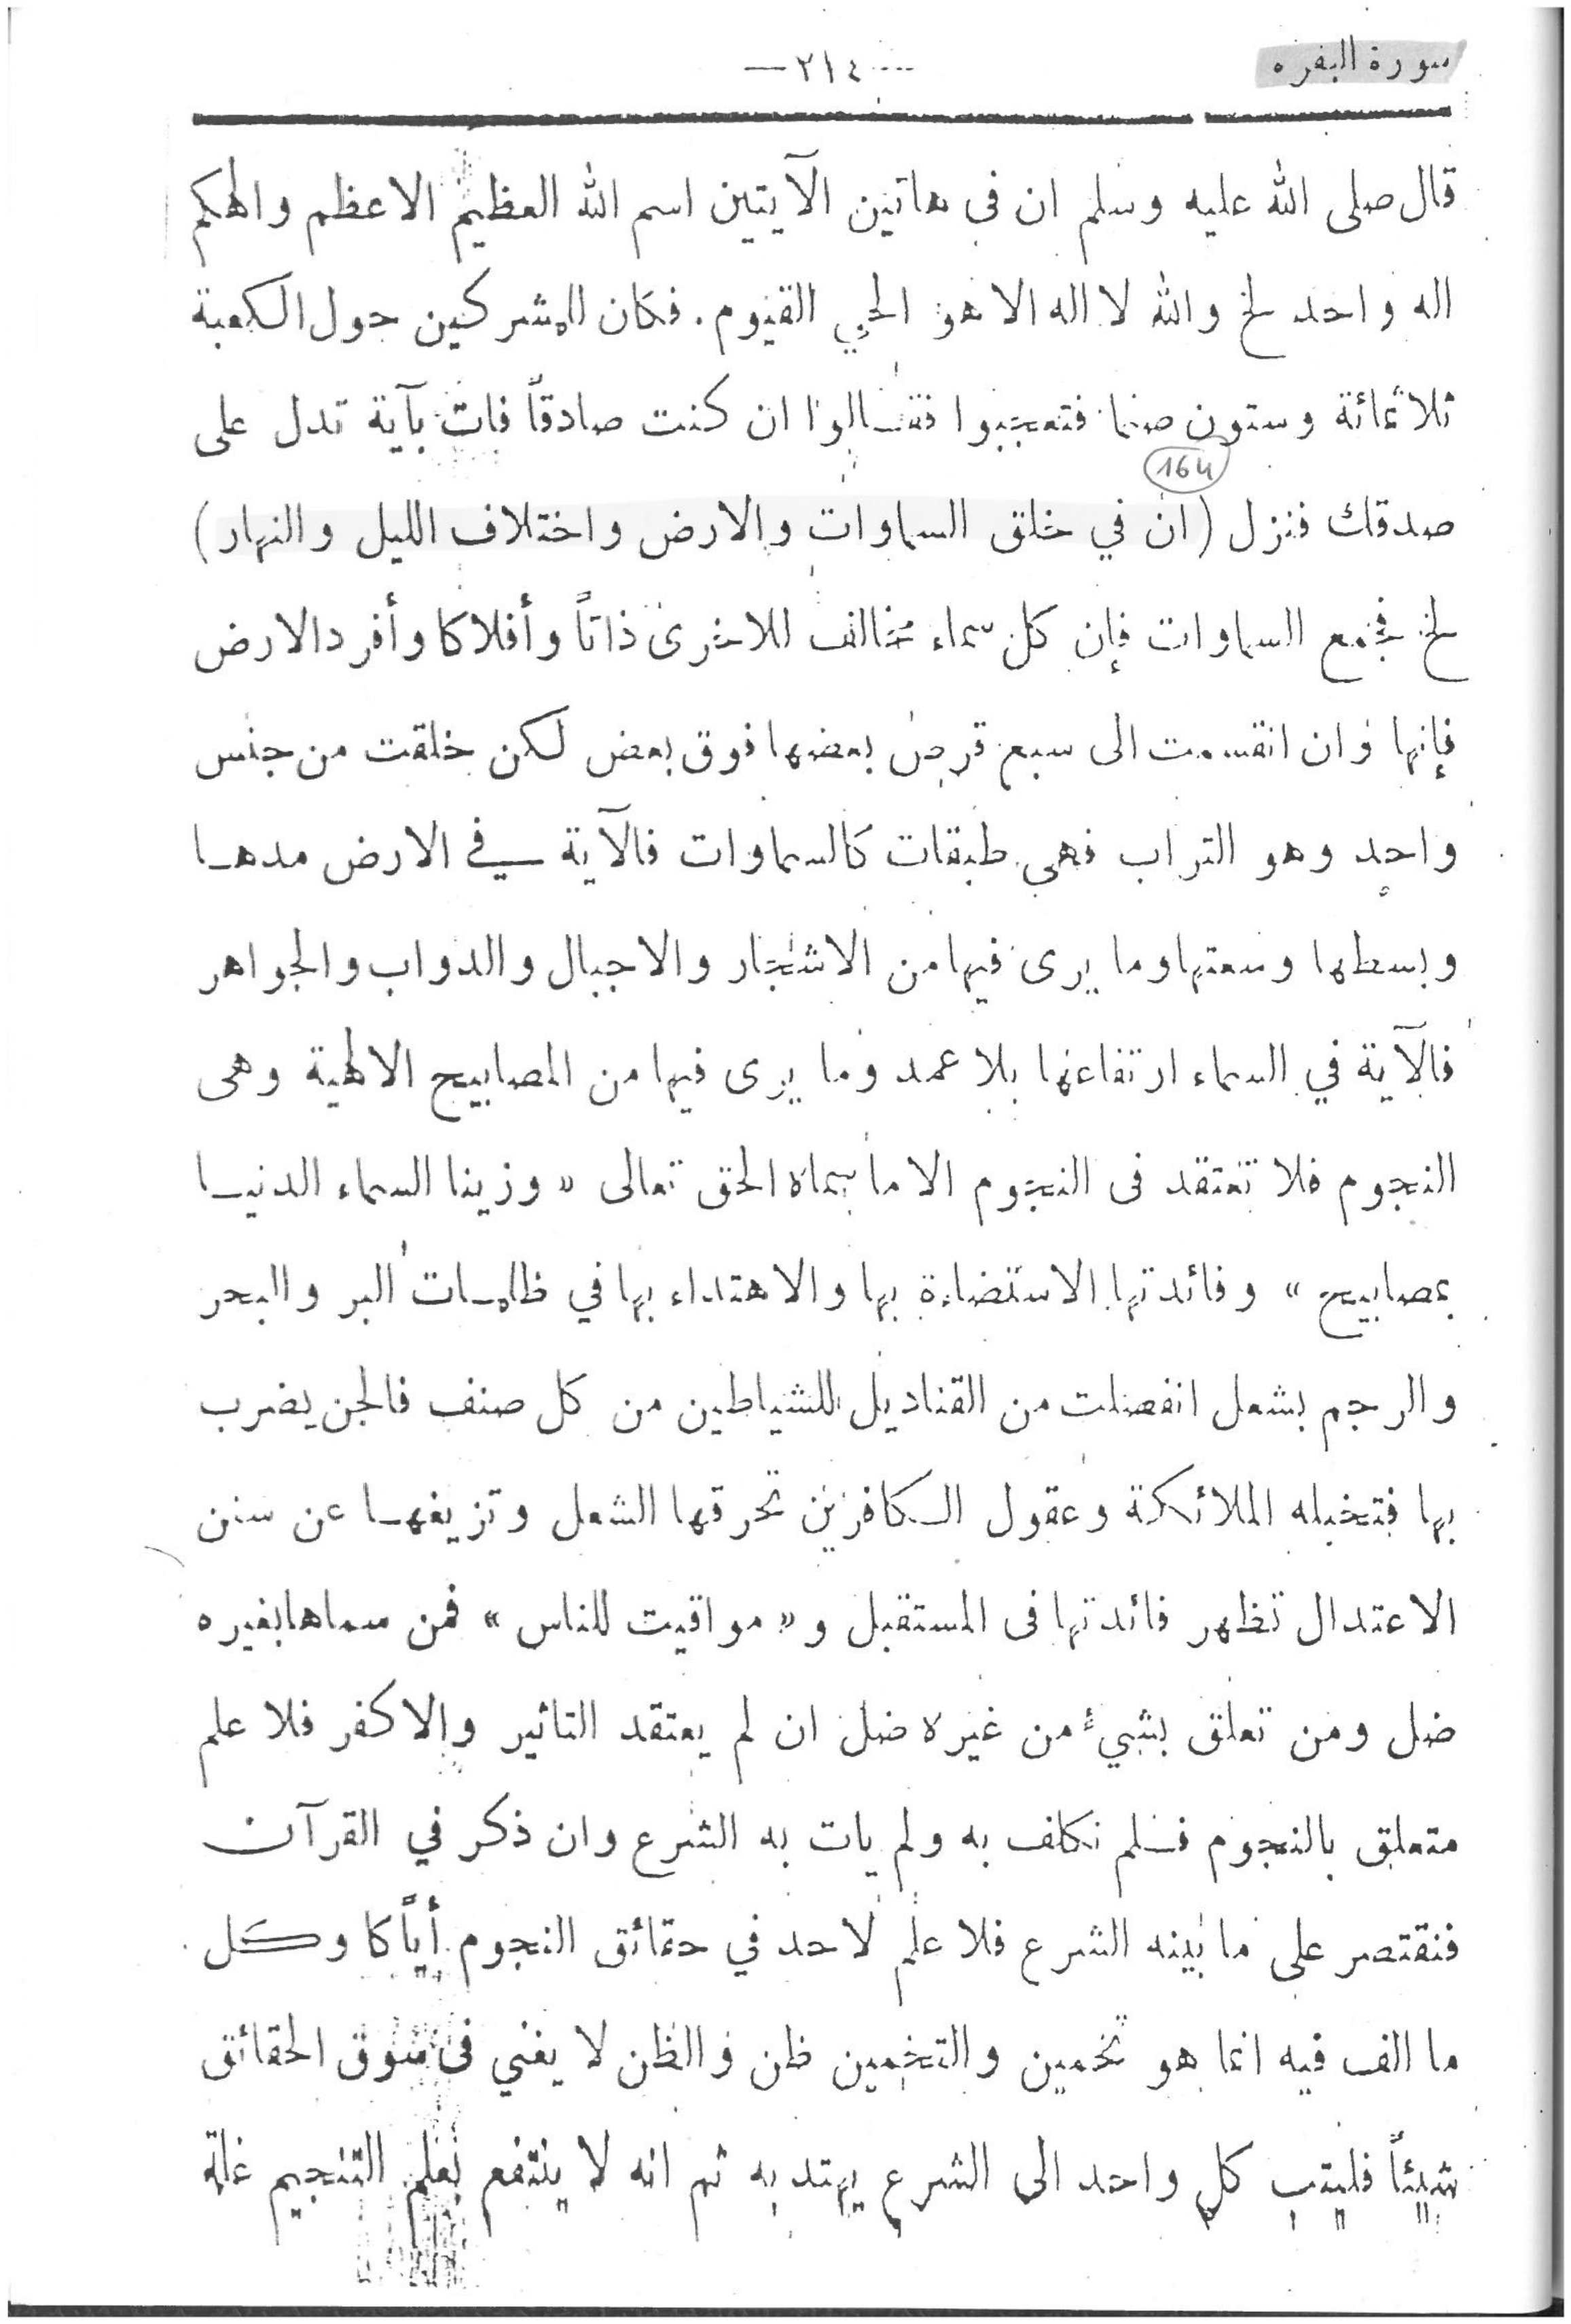 سورة البقره
—٢١٤—
قال صلى الله عليه وسلم ان فى هاتين الآيتين اسم الله العظيم الاعظم والهكم
اله واحد لخ والله لا اله الا هو الحي القيوم. فكان للمشركين حول الكعبة
ثلاثمائة وستون صنما فتعجبوا فقالوا ان كنت صادقاً فات بآية تدل على
164
صدقك فنزل (ان في خلق السماوات والارض واختلاف الليل والنهار)
لخ فجمع السماوات فإن كل سماء مخالف للاخرى ذاتاً وأفلاكا وأفرد الارض
فإنها وان انقسمت الى سبع قرص بعضها فوق بعض لكن خلقت من جنس
واحد وهو التراب فهى طبقات كالسماوات فالآية في الارض مدها
وبسطها وسعتها وما يرى فيها من الاشجار والاجبال والدواب والجواهر
فالآية في السماء ارتفاعها بلا عمد وما يرى فيها من المصابيح الالهية وهى
النجوم فلا تعتقد فى النجوم الا ما سماه الحق تعالى «وزينا السماء الدنيا
بمصابيح» وفائدتها الاستضاءة بها والاهتداء بها في ظلمات البر والبحر
والرجم بشعل انفصلت من القناديل للشياطين من كل صنف فالجن يضرب
بها فتخبله الملائكة وعقول الكافرين تحرقها الشعل وتزيغها عن سنن
الاعتدال تظهر فائدتها فى المستقبل و«مواقيت للناس» فمن سماها بغيره
ضل ومن تعلق بشيء من غيره ضل ان لم يعتقد التاثير والا كفر فلا علم
متعلق بالنجوم فلم نكلف به ولم يات به الشرع وان ذكر في القرآن
فنقتصر على ما بينه الشرع فلا علم لاحد في حقائق النجوم أياً كا وكل
ما الف فيه انما هو تخمين والتخمين ظن والظن لا يغني فى سوق الحقائق
شيئاً فليتب كل واحد الى الشرع يهتد به ثم انه لا ينتفع بعلم التنجيم غلة